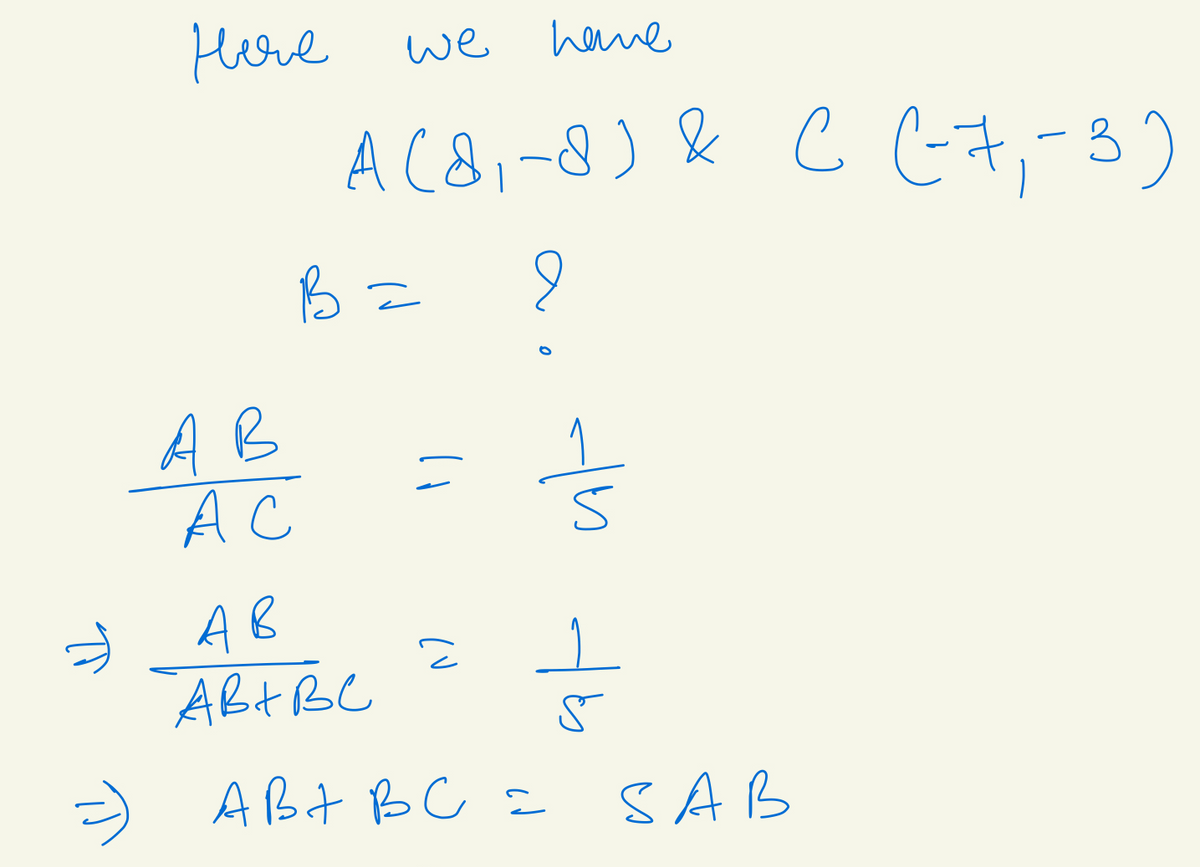 Here we have
A(8,-8) & C (-7,-3)
B = ?
AB/AC = 1/5
⇒ AB/AB+BC = 1/5
⇒ AB+BC = 5AB